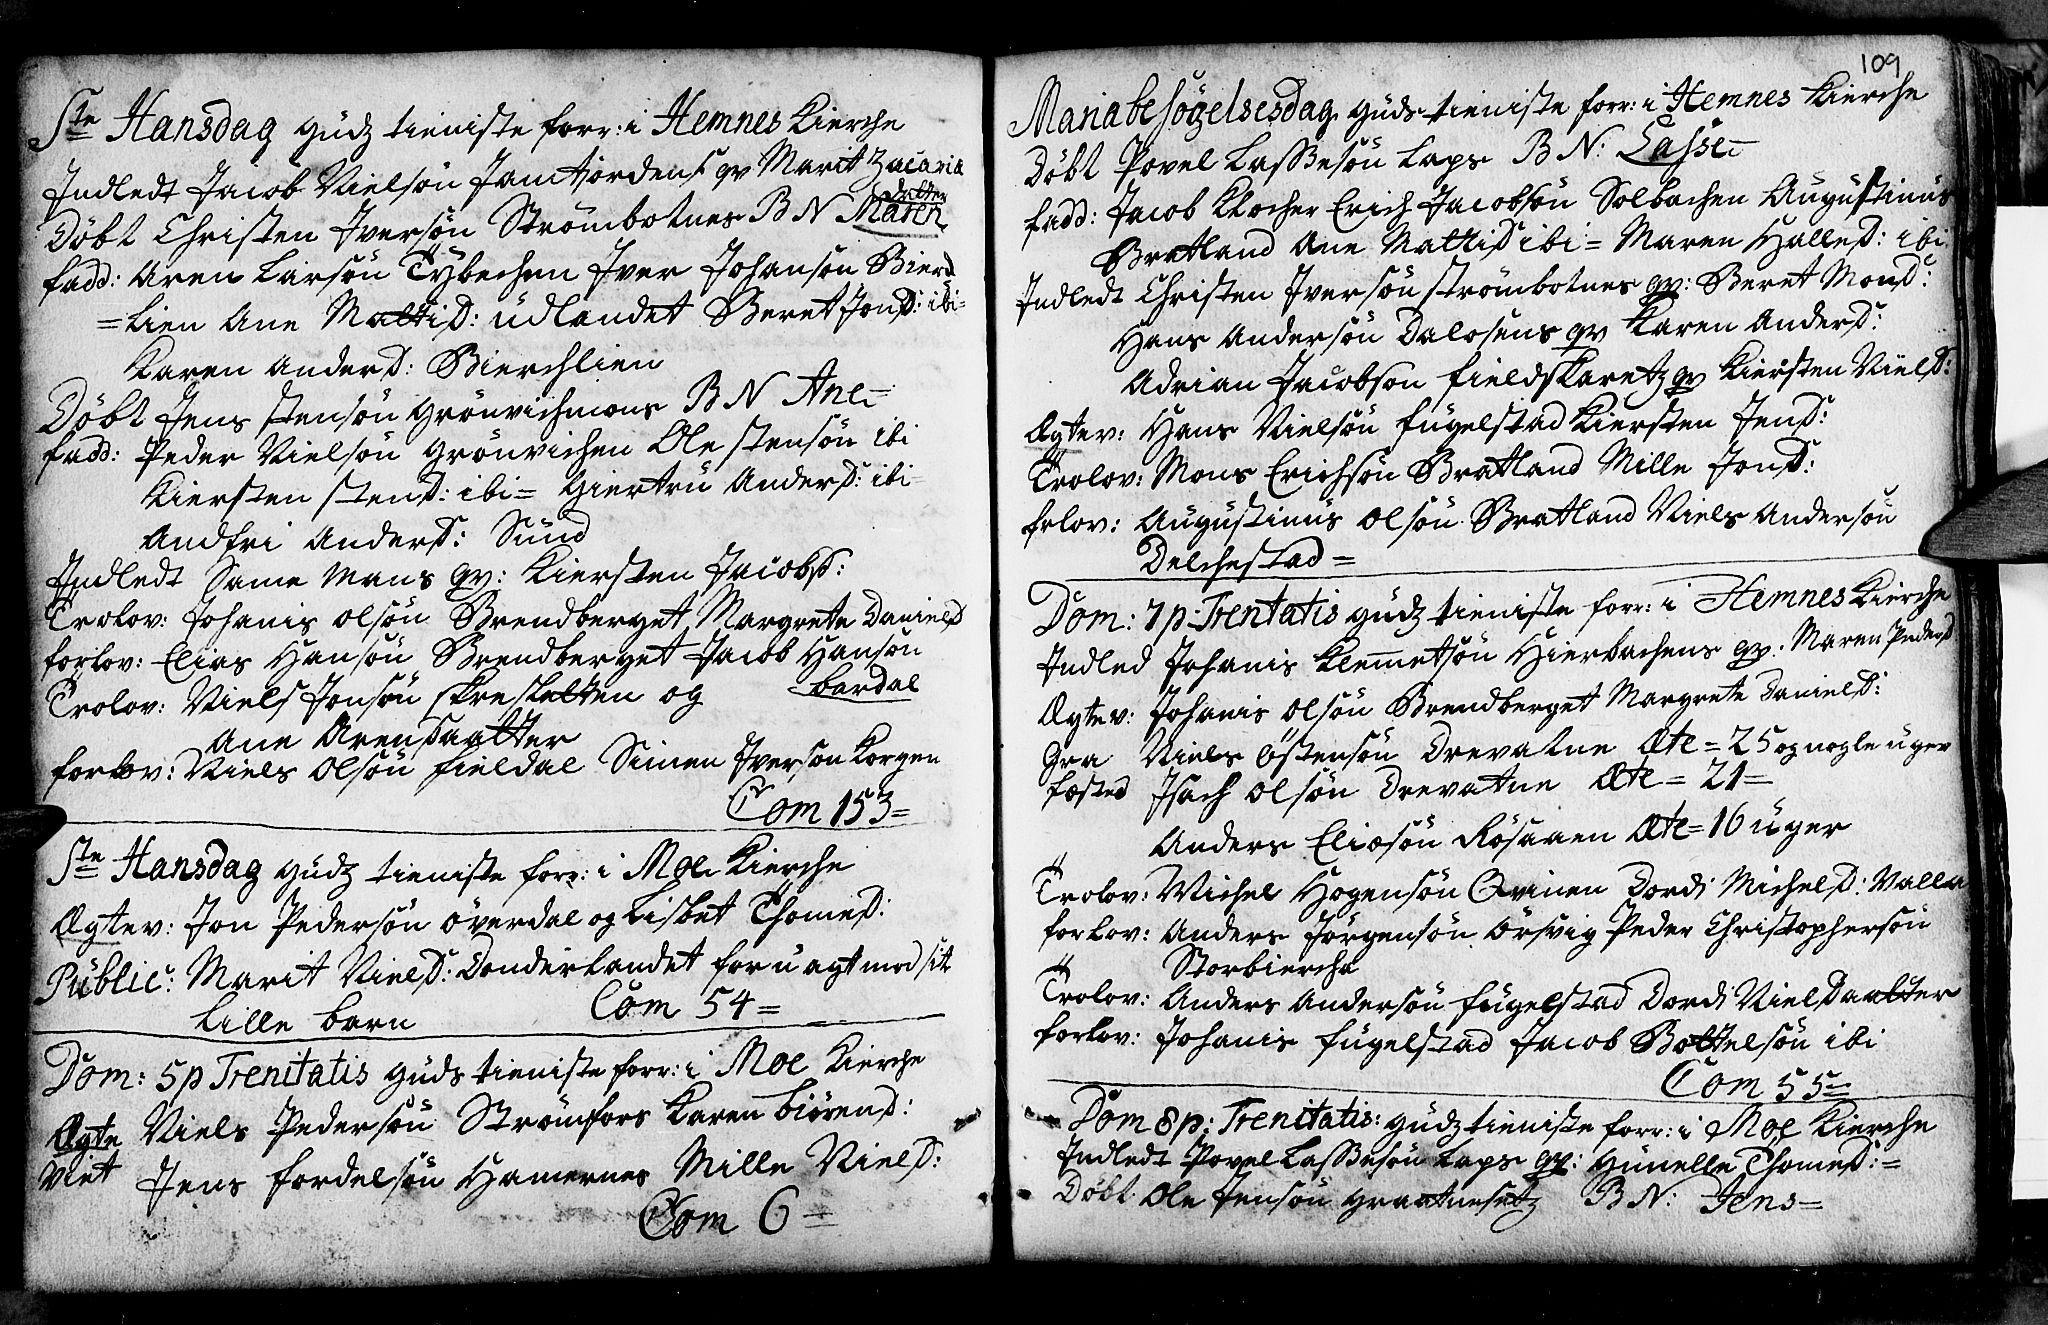 Ste Hansdag gudz tieniste forr: i Hemnes Kierche
Indledt Jacob Nielsön Jamtjordens qv Marit Zacaria
datter
Döbt Christen Iversön Strömbotnes B N Maren
fadd: Aren Larsön Tÿbechen Iver Johansön Bierch
=lien Ane Mattisd: udlandet Beret Jonsd: ibi=
Karen Andersd: Bierchlien
Döbt Jens Stensön Grönvichmons B N Ane=
fadd: Peder Nielsön Grönvichen Ole Stensön ibi
Kiersten Stensd: ibi= Giertru Andersd: ibi
Andfri Andersd: Sund
Indledt Same Mans qv: Kiersten Jacobsd:
Trolov: Johanis Olsön Brendberget Margrete Danielsd
forlov: Elias Hansön Brendberget Jacob Hansön
bardal
Trolov: Niels Jonsön Skresletten og
Ane Arensdaatter
forlov: Niels Olsön fieldal Simen Iverson Korgen
Com 153=
Ste Hansdag gudz tieniste forr: i Moe Kierche
Ægtev: Jon Pedersön överdal og Lisbet Thomesd:
Public: Marit Nielsd: Donderlandet for u agt mod sit
Lille barn Com 54=
Dom: 5 p Trenitatis guds tieniste forr: i Moe Kierche
Ægte Niels Pedersön Strömfors Karen biörensd:
viet Jens fordelsön Hamernes Mille Nielsd:
Com 6=
109
Maria besögelsesdag guds tieniste forr: i Hemnes Kierche
Döbt Povel Lassesön Laps B N: Lasse=
fadd: Jacob Klocher Erich Jacobsön Solbachen Augustinus
Bratland Ane Mattisd ibi= Maren Hallesd: ibi
Indledt Christen Iversön Strömbotnes qv: Beret Monsd:
Hans Andersön Dalosens qv Karen Andersd:
Adrian Jacobsön fieldskaretz qv Kiersten Nielsd:
Ægtev: Hans Nielsön fugelstad Kiersten Jensd:
Trolov: Mons Erichsön Bratland Mille Jonsd:
frlov: Augustinus Olsön Bratland Niels Andersön
Delchestad=
Dom: 7 p: Trentatis gudz tieniste forr: i Hemnes Kierche
Indled Johanis Klemetsön Hierbachens qv: Maren Pedersd
Ægtev: Johanis Olsön Brendberget Margrete Danielsd:
Gra Niels Östensön Drevatne Æte=25 og nogle uger
fested Isach Olsön Drevatne Æte=21=
Anders Eliæsön Rösaaen Æte=16 uger
Trolov: Michel Hogensön Qvinen Dordi Michelsd: Valla
forlov: Anders Jörgensön Örsvig Peder Christophersön
Storbierche
Trolov: Anders Andersön fugelstad Dordi Nielsdaatter
forlov: Johanis fugelstad Jacob Bottelsön ibi
Com 55=
Dom 8 p: Trenitatis: gudz tieniste forr: i Moe Kierche
Indledt Povel Lassesön Laps qv: Gunelle Thomesd:=
Döbt Ole Jensön Graatnesetz B N: Jens=